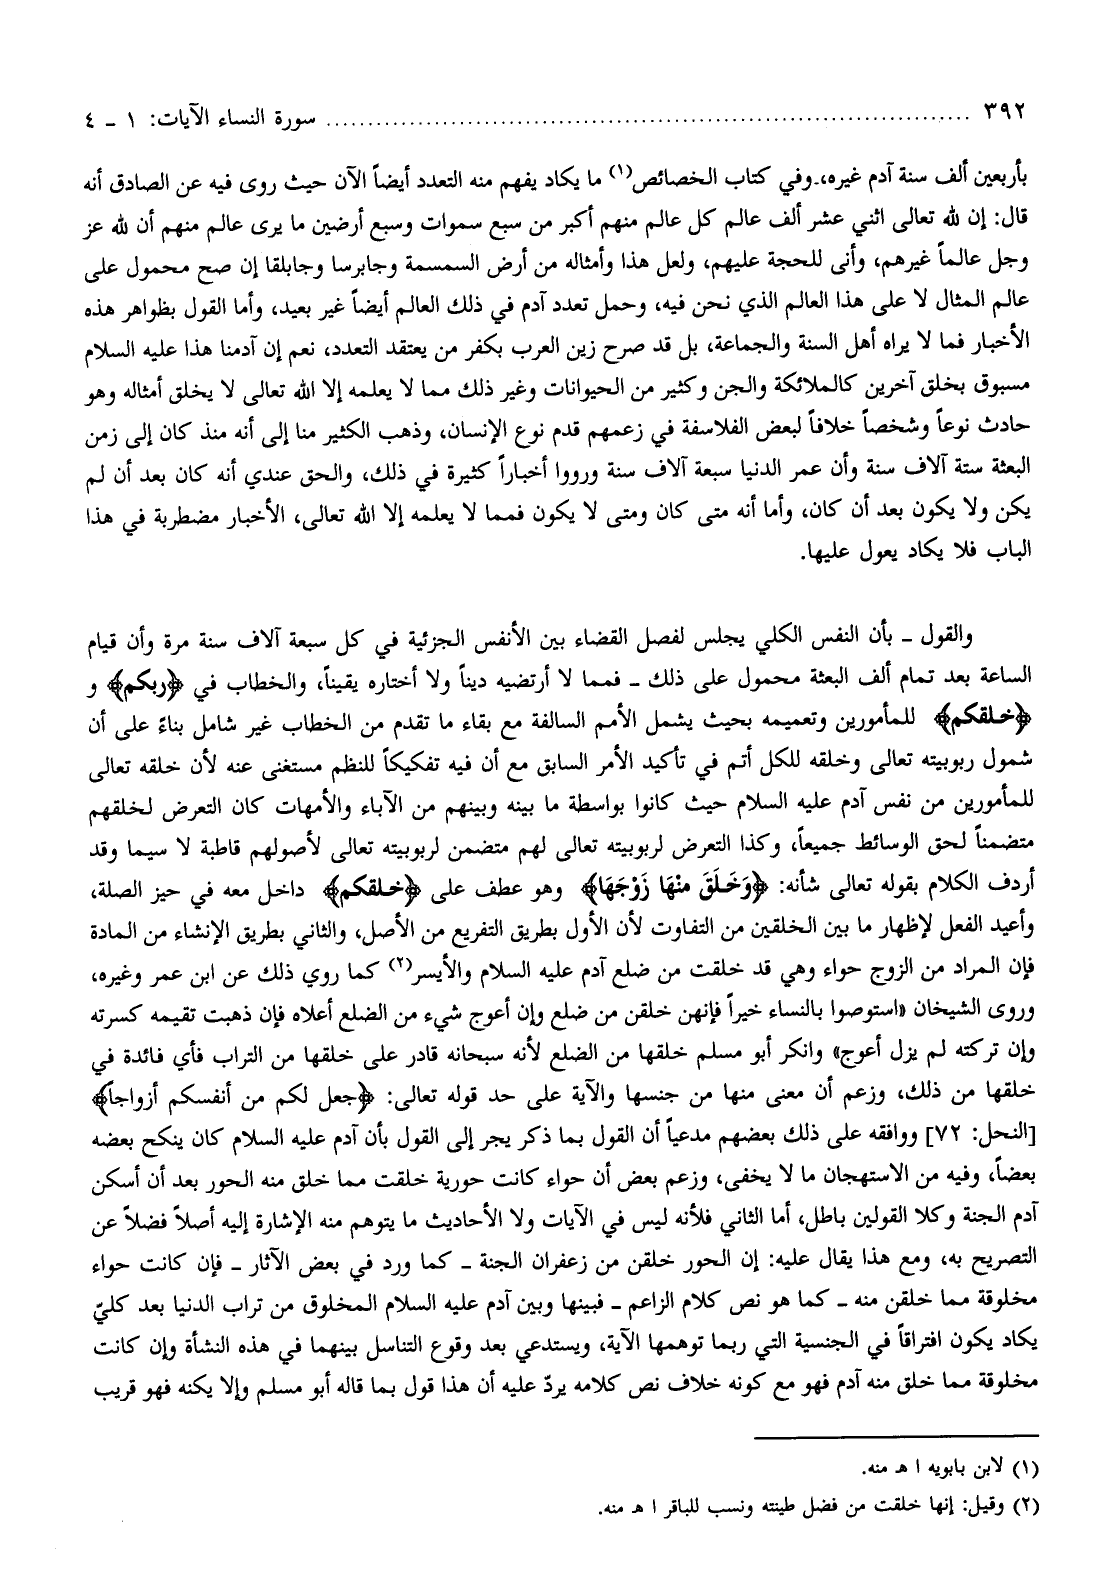 ٣٩٢ ........................................................................ سورة النساء الآيات: ١ - ٤
بأربعين ألف سنة آدم غيره، وفي كتاب الخصائص(١) ما يكاد يفهم منه التعدد أيضاً الآن حيث روى فيه عن الصادق أنه
قال: إن لله تعالى اثني عشر ألف عالم كل عالم منهم أكبر من سبع سموات وسبع أرضين ما يرى عالم منهم أن لله عز
وجل عالماً غيرهم، وأنى للحجة عليهم، ولعل هذا وأمثاله من أرض السمسمة وجابرسا وجابلقا إن صح محمول على
عالم المثال لا على هذا العالم الذي نحن فيه، وحمل تعدد آدم في ذلك العالم أيضاً غير بعيد، وأما القول بظواهر هذه
الأخبار فما لا يراه أهل السنة والجماعة، بل قد صرح زين العرب بكفر من يعتقد التعدد، نعم إن آدمنا هذا عليه السلام
مسبوق بخلق آخرين كالملائكة والجن وكثير من الحيوانات وغير ذلك مما لا يعلمه إلا الله تعالى لا يخلق أمثاله وهو
حادث نوعاً وشخصاً خلافاً لبعض الفلاسفة في زعمهم قدم نوع الإنسان، وذهب الكثير منا إلى أنه منذ كان إلى زمن
البعثة ستة آلاف سنة وأن عمر الدنيا سبعة آلاف سنة ورووا أخباراً كثيرة في ذلك، والحق عندي أنه كان بعد أن لم
يكن ولا يكون بعد أن كان، وأما أنه متى كان ومتى لا يكون فمما لا يعلمه إلا الله تعالى، الأخبار مضطربة في هذا
الباب فلا يكاد يعول عليها.
والقول - بأن النفس الكلي يجلس لفصل القضاء بين الأنفس الجزئية في كل سبعة آلاف سنة مرة وأن قيام
الساعة بعد تمام ألف البعثة محمول على ذلك - فمما لا أرتضيه ديناً ولا أختاره يقيناً، والخطاب في ﴿ربكم﴾ و
﴿خلقكم﴾ للمأمورين وتعميمه بحيث يشمل الأمم السالفة مع بقاء ما تقدم من الخطاب غير شامل بناءً على أن
شمول ربوبيته تعالى وخلقه للكل أتم في تأكيد الأمر السابق مع أن فيه تفكيكاً للنظم مستغنى عنه لأن خلقه تعالى
للمأمورين من نفس آدم عليه السلام حيث كانوا بواسطة ما بينه وبينهم من الآباء والأمهات كان التعرض لخلقهم
متضمناً لحق الوسائط جميعاً، وكذا التعرض لربوبيته تعالى لهم متضمن لربوبيته تعالى لأصولهم قاطبة لا سيما وقد
أردف الكلام بقوله تعالى شأنه: ﴿وَخَلَقَ مِنْهَا زَوْجَهَا﴾ وهو عطف على ﴿خلقكم﴾ داخل معه في حيز الصلة،
وأعيد الفعل لإظهار ما بين الخلقين من التفاوت لأن الأول بطريق التفريع من الأصل، والثاني بطريق الإنشاء من المادة
فإن المراد من الزوج حواء وهي قد خلقت من ضلع آدم عليه السلام والأيسر(٢) كما روي ذلك عن ابن عمر وغيره،
وروى الشيخان «استوصوا بالنساء خيراً فإنهن خلقن من ضلع وإن أعوج شيء من الضلع أعلاه فإن ذهبت تقيمه كسرته
وإن تركته لم يزل أعوج» وانكر أبو مسلم خلقها من الضلع لأنه سبحانه قادر على خلقها من التراب فأي فائدة في
خلقها من ذلك، وزعم أن معنى منها من جنسها والآية على حد قوله تعالى: ﴿جعل لكم من أنفسكم أزواجاً﴾
[النحل: ٧٢] ووافقه على ذلك بعضهم مدعياً أن القول بما ذكر يجر إلى القول بأن آدم عليه السلام كان ينكح بعضه
بعضاً، وفيه من الاستهجان ما لا يخفى، وزعم بعض أن حواء كانت حورية خلقت مما خلق منه الحور بعد أن أسكن
آدم الجنة وكلا القولين باطل، أما الثاني فلأنه ليس في الآيات ولا الأحاديث ما يتوهم منه الإشارة إليه أصلاً فضلاً عن
التصريح به، ومع هذا يقال عليه: إن الحور خلقن من زعفران الجنة - كما ورد في بعض الآثار - فإن كانت حواء
مخلوقة مما خلقن منه - كما هو نص كلام الزاعم - فبينها وبين آدم عليه السلام المخلوق من تراب الدنيا بعد كليّ
يكاد يكون افتراقاً في الجنسية التي ربما توهمها الآية، ويستدعي بعد وقوع التناسل بينهما في هذه النشأة وإن كانت
مخلوقة مما خلق منه آدم فهو مع كونه خلاف نص كلامه يردّ عليه أن هذا قول بما قاله أبو مسلم وإلا يكنه فهو قريب
(١) لابن بابويه ا هـ منه.
(٢) وقيل: إنها خلقت من فضل طينته ونسب للباقر ا هـ منه.